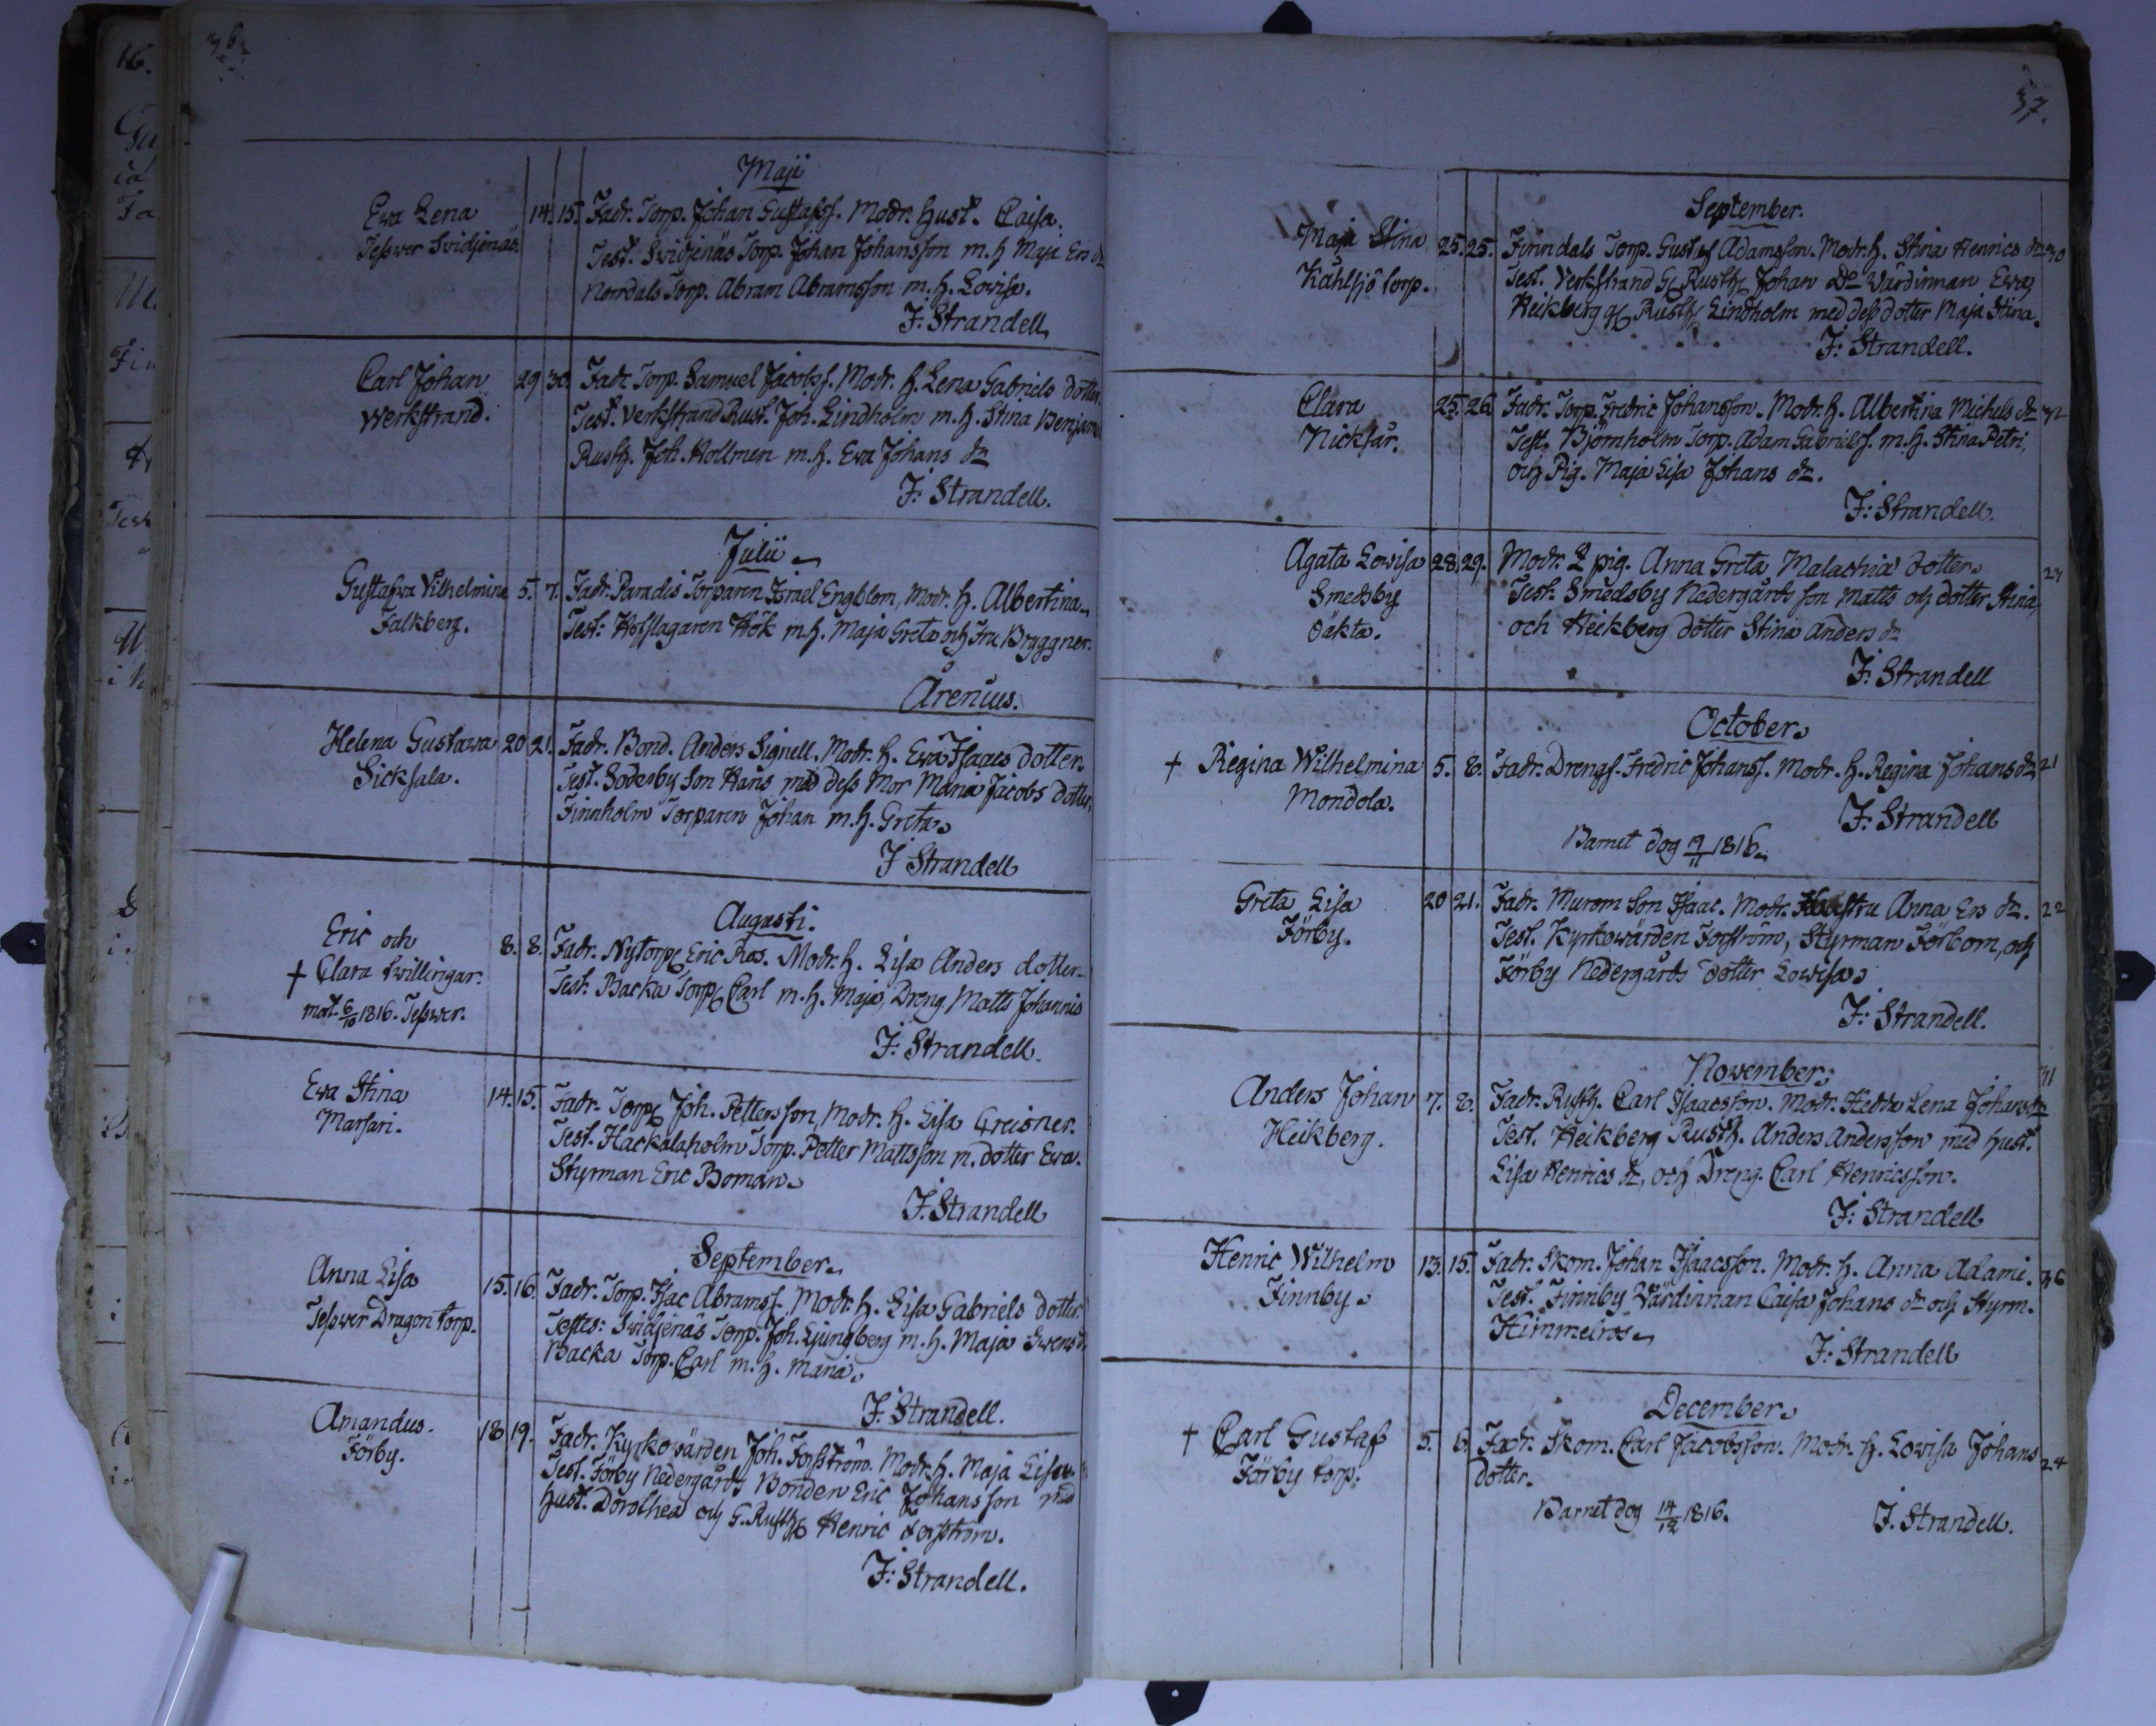 36.
Maji
Ewa Lena 14. 15. Fadr. Torp. Johan Gustafss. Modr. Hust. Caisa.
Tessver Svidjenäs. Test. Svidjenäs Torp. Johan Johansson m. h Maja Ers dr
Norrdals Torp. Abram Abramsson m. h. Lovisa.
F: Strandell
Carl Johan 29 30. Fadr. Torp. Samuel Jacobss. Modr. h. Lena Gabriels dotter.
Werkstrand. Test. Verkstrand Rust. Joh. Lindholm m. h. Stina Benjam
Rusth. Joh. Hollmen m. h. Eva Johans dr
F: Strandell.
Julii
Gustafva Vilhelmina 5. 7. Fadr. Paradis Torparen Israel Engblom, Modr. h. Albertina.
Falkberg. Test: Hofslagaren Hök m. h. Maja Greta och Fru Brÿggner.
Arenius.
Helena Gustawa 20 21. Fadr. Bond. Anders Signell. Modr. h. Ewa Isaacs dotter.
Sicksala. Test. Söderby Son Hans med dess Mor Maria Jacobs dotter,
Finnholm Torparen Johan m. h. Greta.
F Strandell
Augusti.
Eric och 8. 8. Fadr. Nytorp Eric Ros. Modr. h. Lisa Anders dotter.
† Clara twillingar. Test. Backa Torp Carl m. h. Maja, Dreng Matts Johannis
mort. 6/10 1816. Tessver.
F: Strandell.
Ewa Stina 14. 15. Fadr. Torp Joh. Pettersson, Modr. h. Lisa Greisner.
Marsari. Test. Hackalaholm Torp. Petter Mattsson m. dotter Ewa.
Styrman Eric Boman.
F. Strandell
September.
Anna Lisa 15. 16. Fadr. Torp. Isac Abramss. Modr. h. Lisa Gabriels dotter
Tessver Dragontorp. Testes: Svidjenäs Torp. Joh. Ljungberg m. h. Maja Swens d.
Backa Torp. Carl m. h. Maria.
F. Strandell.
Amandus. 18 19. Fadr. Kyrkovärden Joh. Forsström. Modr. h. Maja Lisa
Förby. Test. Förby Nedergårds Bonden Eric Johansson med
Hust. Dorothea och G. Rusth Henric Forsström.
F: Strandell.
37.
September.
Maja Stina 25. 25. Finndals Torp. Gustaf Adamsson. Modr. h. Stina Henrics dr 30
Kåhlsjö torp. Test. Verkstrand G Rusth Johan Dr Värdinnan Ewa,
Heikberg G Rusth Lindholm med dess dotter Maja Stina.
F: Strandell.
Clara 25. 26. Fadr. Torp. Fredric Johansson. Modr. h. Albertina Michels dr 32
Nicksår. Test. Björnholm Torp. Adam Gabrielss. m. h. Stina Petri,
och Pig. Maja Lisa Johans dr.
F: Strandell.
Agata Lovisa 28. 29. Modr. Q pig. Anna Greta Malachiæ dotter.
Smedsby Test. Smedsby Nedergårds son Matts och dotter Stina,
Oäkta. och Heikberg dotter Stina Anders dr
F: Strandell
October.
† Regina Wilhelmina 5. 8. Fadr. Drengs. Fredric Johanss. Modr. h. Regina Johans dr 21
Mondola.
F: Strandell
Barnet dog 19/11 1816.
Greta Lisa 20 21. Fadr. Murom Son Isaac. Modr. Hustru Anna Ers dr. 22
Förby. Test. Kyrkovärden Forsström, Styrman Förbom, och
Förby Nedergårds dotter Lovisa.
F: Strandell.
November.
Anders Johan 7. 8. Fadr. Rusth. Carl Isaacsson. Modr. Hedda Lena Johans dr 31
Heikberg. Test. Heikberg Rusth. Anders Andersson med hust.
Lisa Henrics dr, och Dreng. Carl Henricsson.
F: Strandell
Henric Wilhelm 13. 15. Fadr. Skom. Johan Isaacsson. Modr. h. Anna Adami. 36
Finnby. Test. Finnby Värdinnan Caisa Johans dr och Styrm.
Himmelros.
F: Strandell
December.
† Carl Gustaf 5. 6. Fadr. Skom. Carl Jacobsson. Modr. h. Lovisa Johans 24
Förby torp. dotter.
Barnet dog 14/12 1816. F. Strandell.